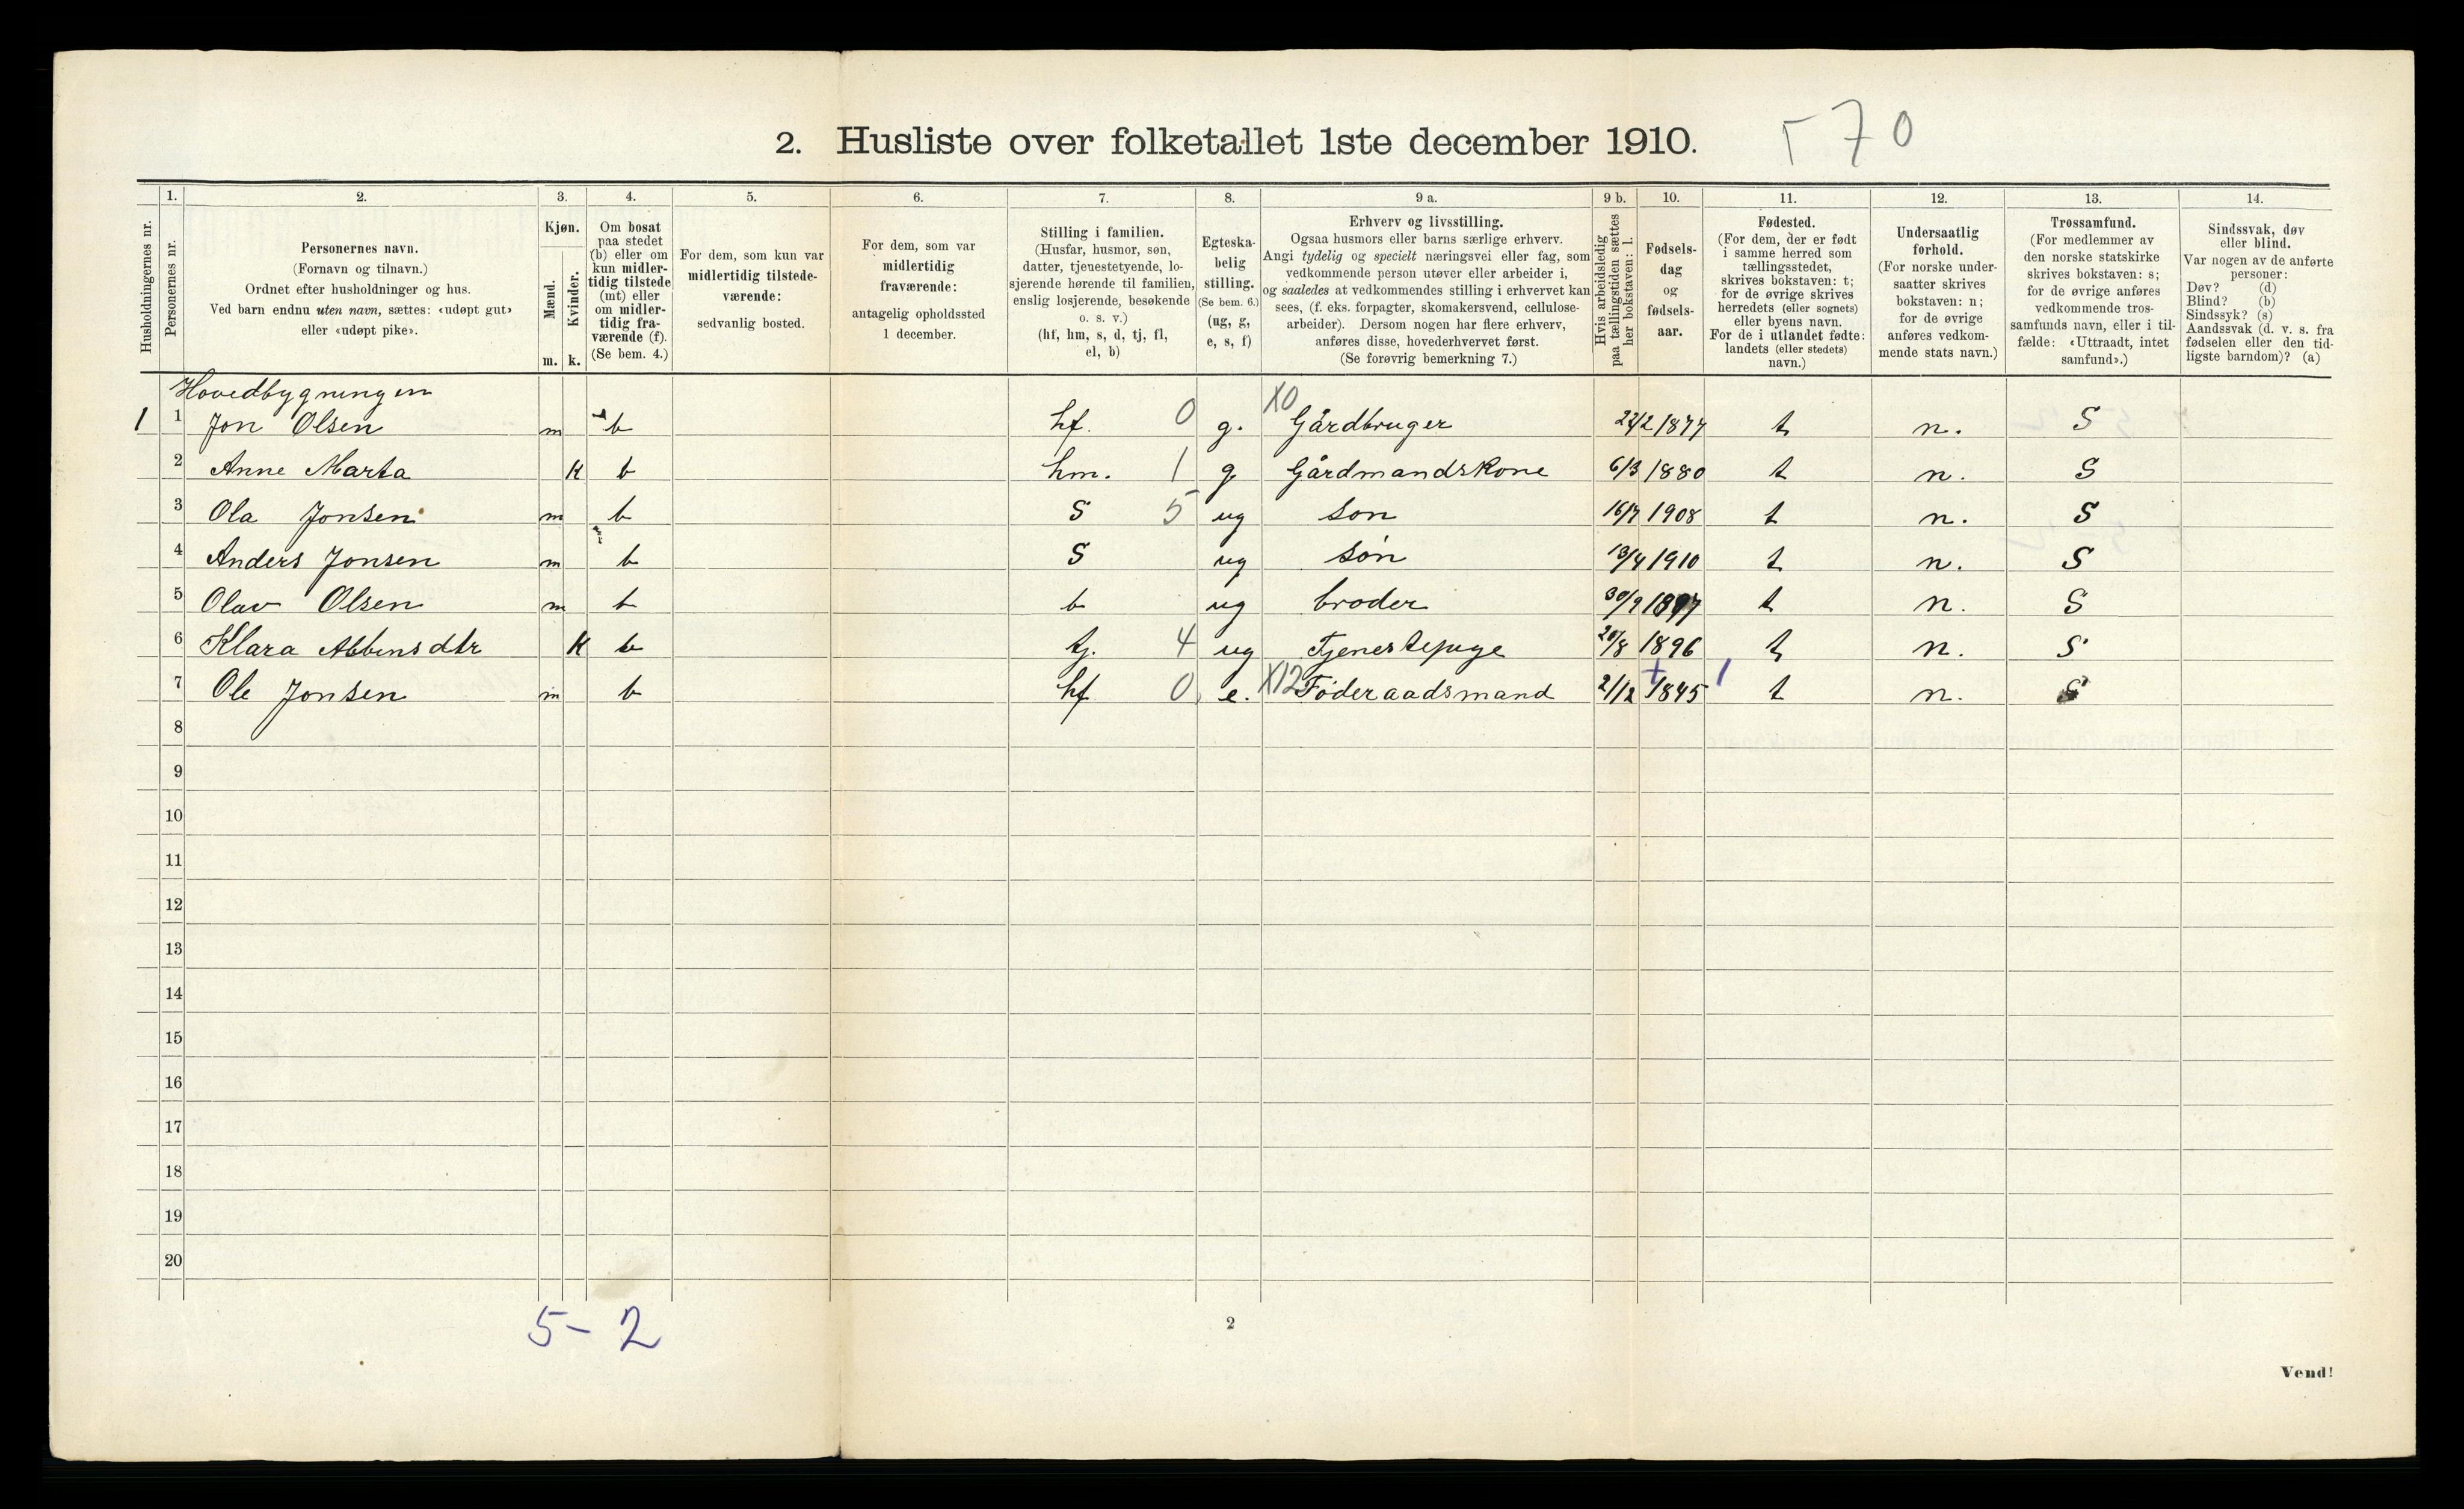 2. Husliste over folketallet 1ste december 1910.
70
Husholdningernes nr.
1.
Personernes nr.
2.
Personernes navn.
(Fornavn og tilnavn.)
Ordnet efter husholdninger og hus.
Ved barn endnu uten navn, sættes: «udøpt gut»
eller «udøpt pike».
3.
Kjøn.
Mænd.
Kvinder.
m. k.
4.
Om bosat
paa stedet
(b) eller om
kun midler-
tidig tilstede
(mt) eller
om midler-
tidig fra-
værende (f).
(Se bem. 4.)
5.
For dem, som kun var
midlertidig tilstede-
værende:
sedvanlig bosted.
6.
For dem, som var
midlertidig
fraværende:
antagelig opholdssted
1 december.
7.
Stilling i familien.
(Husfar, husmor, søn,
datter, tjenestetyende, lo-
sjerende hørende til familien,
enslig losjerende, besøkende
o. s. v.)
(hf, hm, s, d, tj, fl,
el, b)
8.
Egteska-
belig
stilling.
(Se bem. 6.)
(ug, g,
e, s, f)
9 a.
Erhverv og livsstilling.
Ogsaa husmors eller barns særlige erhverv.
Angi tydelig og specielt næringsvei eller fag, som
vedkommende person utøver eller arbeider i,
og saaledes at vedkommendes stilling i erhvervet kan
sees, (f. eks. forpagter, skomakersvend, cellulose-
arbeider). Dersom nogen har flere erhverv,
anføres disse, hovederhvervet først.
(Se forøvrig bemerkning 7.)
9 b.
Hvis arbeidsledig
paa tællingstiden sættes
her bokstaven: l.
10.
Fødsels-
dag
og
fødsels-
aar.
11.
Fødested.
(For dem, der er født
i samme herred som
tællingsstedet,
skrives bokstaven: t;
for de øvrige skrives
herredets (eller sognets)
eller byens navn.
For de i utlandet fødte:
landets (eller stedets)
navn.)
12.
Undersaatlig
forhold.
(For norske under-
saatter skrives
bokstaven: n;
for de øvrige
anføres vedkom-
mende stats navn.)
13.
Trossamfund.
(For medlemmer av
den norske statskirke
skrives bokstaven: s;
for de øvrige anføres
vedkommende tros-
samfunds navn, eller i til-
fælde: «Uttraadt, intet
samfund».)
14.
Sindssvak, døv
eller blind.
Var nogen av de anførte
personer:
Døv? (d)
Blind? (b)
Sindssyk? (s)
Aandssvak (d. v. s. fra
fødselen eller den tid-
ligste barndom)? (a)
Hovedbygningen
1 1 Jon Olsen m b hf. 0 g. X0 Gårdbruger 22/2 1877 t n. S
2 Anne Marta K b hm. 1 g Gårdmandskone 6/3 1880 t n. S
3 Ola Jonsen m b S 5 ug son 16/7 1908 t n. S
4 Anders Jonsen m b S ug søn 13/4 1910 t n. S
5 Olav Olsen m b b ug broder 30/9 1897 t n. S
6 Klara Abbensdtr K b tj. 4 ug Tjenestepige 20/8 1896 t n. S
7 Ole Jonsen m b hf 0 e. X12 Føderaadsmand 2/12 1845 t n. S
8
9
10
11
12
13
14
15
16
17
18
19
20
5 - 2
2
Vend!